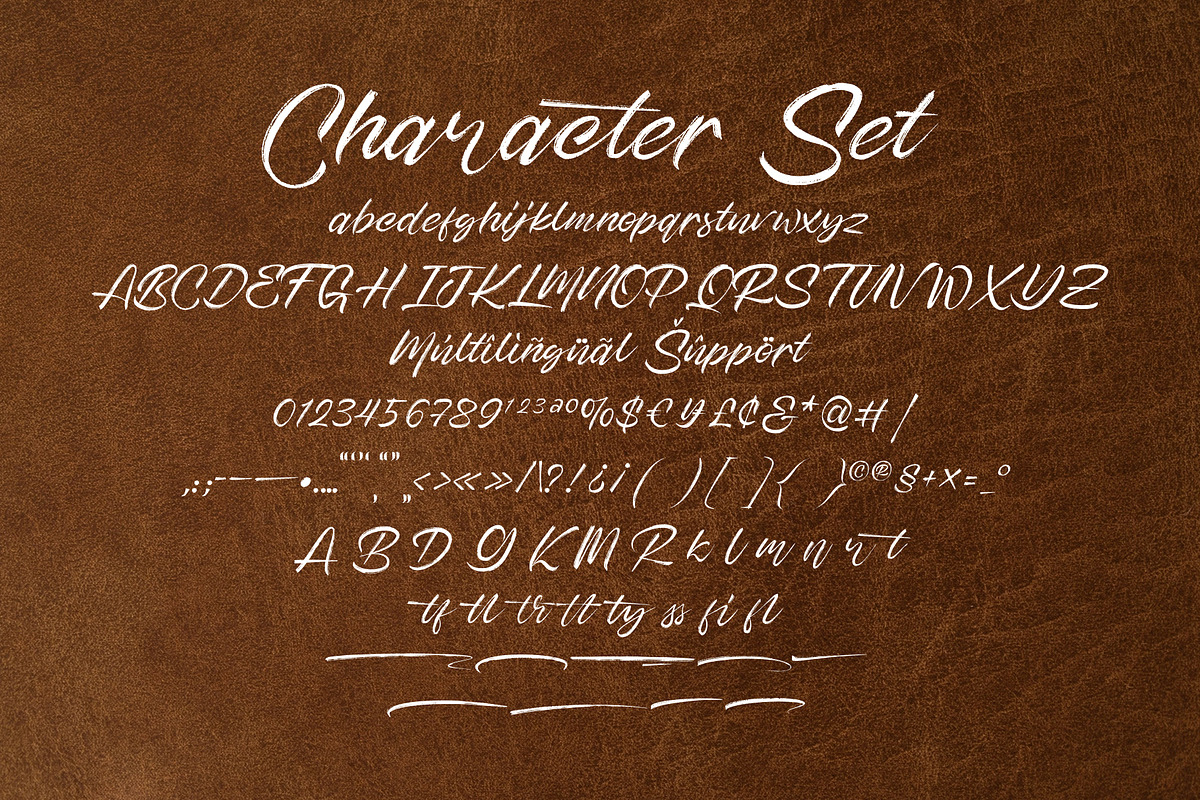 Character Set
abcdefghijklmnopqrstuvwxyz
ABCDEFGHIJKLMNOPQRSTUVWXYZ
Múltîlìñgüãl Šûppört
0123456789¹²³ªº%$€¥£¢&*@#|
,:;-–—•.…“”‘’“”‚„<>«»/\?!¿¡( )[ ]{ }©®§+×=_°
A B D G K M R k l m n r t
tf tl tr tt ty ss fi fl